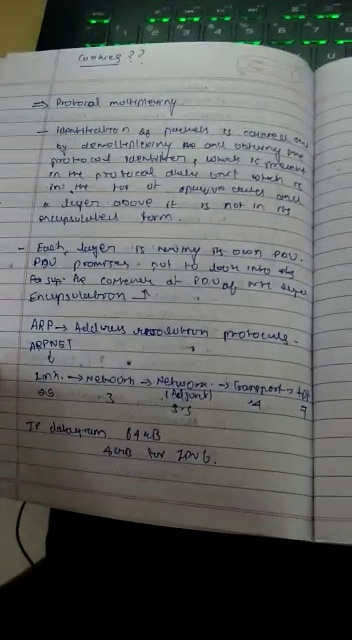 Cookies ??
⇒ Protocol multiplexing.
- identification of packets is carried out
by demultiplexing and obtaining the
protocol identifier, which is present
in the protocol data unit which is
in the
a layer above it is not in its
encapsulated form.
- Each layer is having its own PDU.
PDU promises not to look into the
the contents of PDU of Nth layer
Encapsulation
ARP → Address resolution protocols.
ARPNET
↓
Link → Network → Network → Transport → 
(Adjunct)
3 3.5 4 7
IP datagram 64 KB
4GB for IPv6.